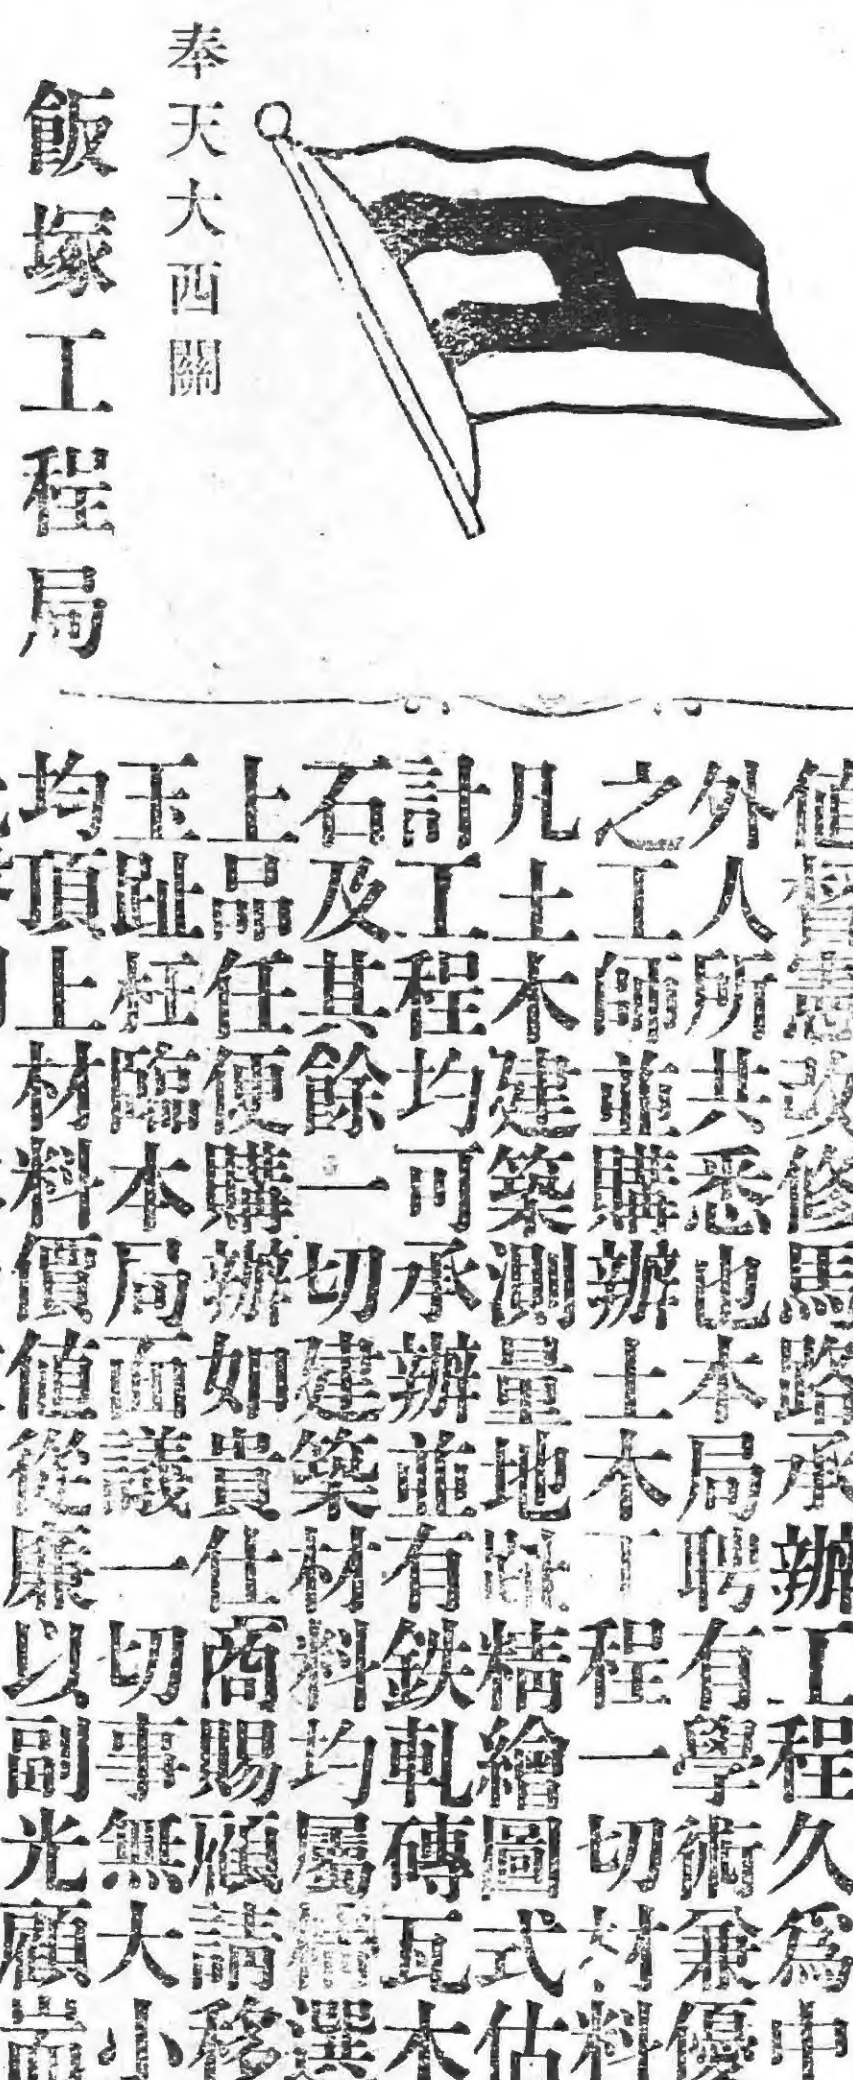 奉天大西關
飯塚工程局
值督憲改修馬路承辦工程久爲中
外人所共悉也本局聘有學術兼優
之工師並購辦土木工程一切材料
凡土木建築測量地址精繪圖式估
計工程均可承辦並有鉄軋磚瓦木
石及其餘一切建築材料均屬選
上品任便購辦如貴仕商賜顧請移
玉趾枉臨本局面議一切事無大小
均頂上材料價值從廉以副光顧